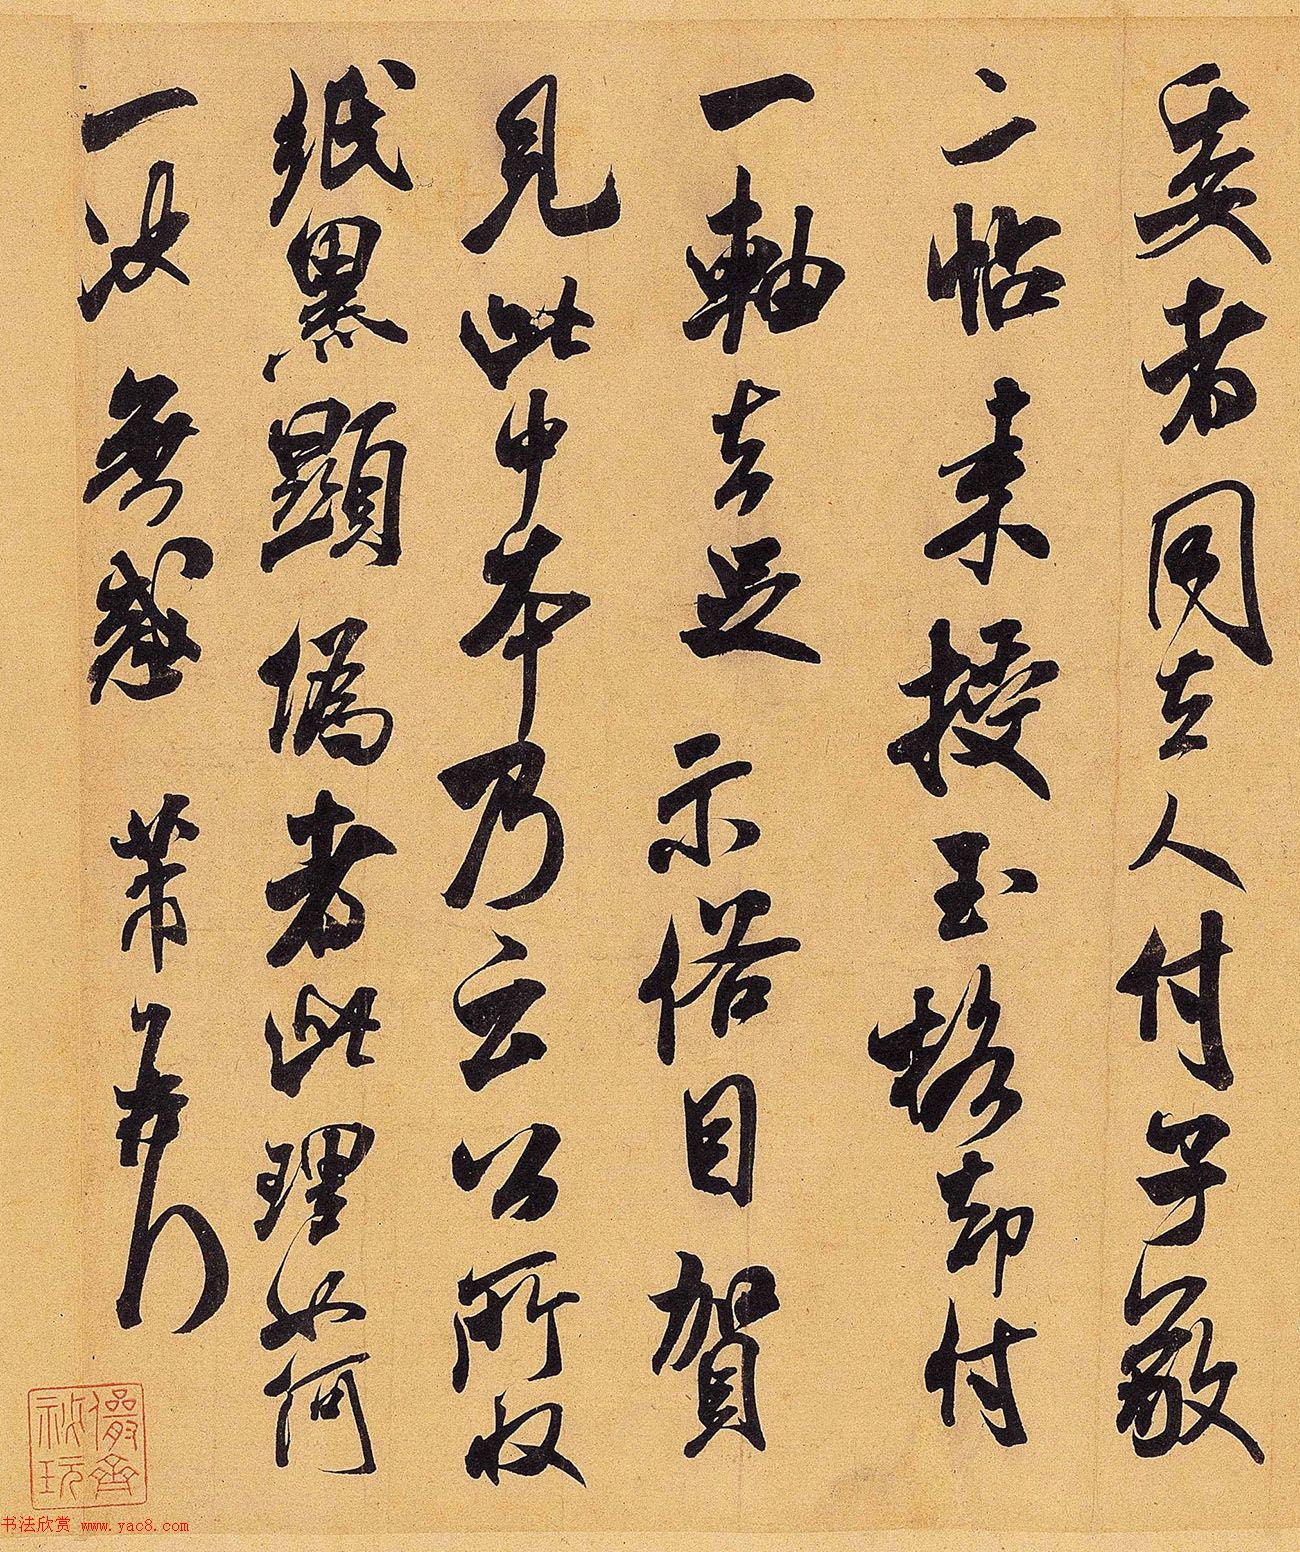 者同去人付子敬
二帖来授玉格却付
一軸去足示俗目賀
見此中本乃云公所收
紙黑顯偽者此理如何
一決無惑 芾頓首
儼齋
秘玩
书法欣赏 www.yac8.com